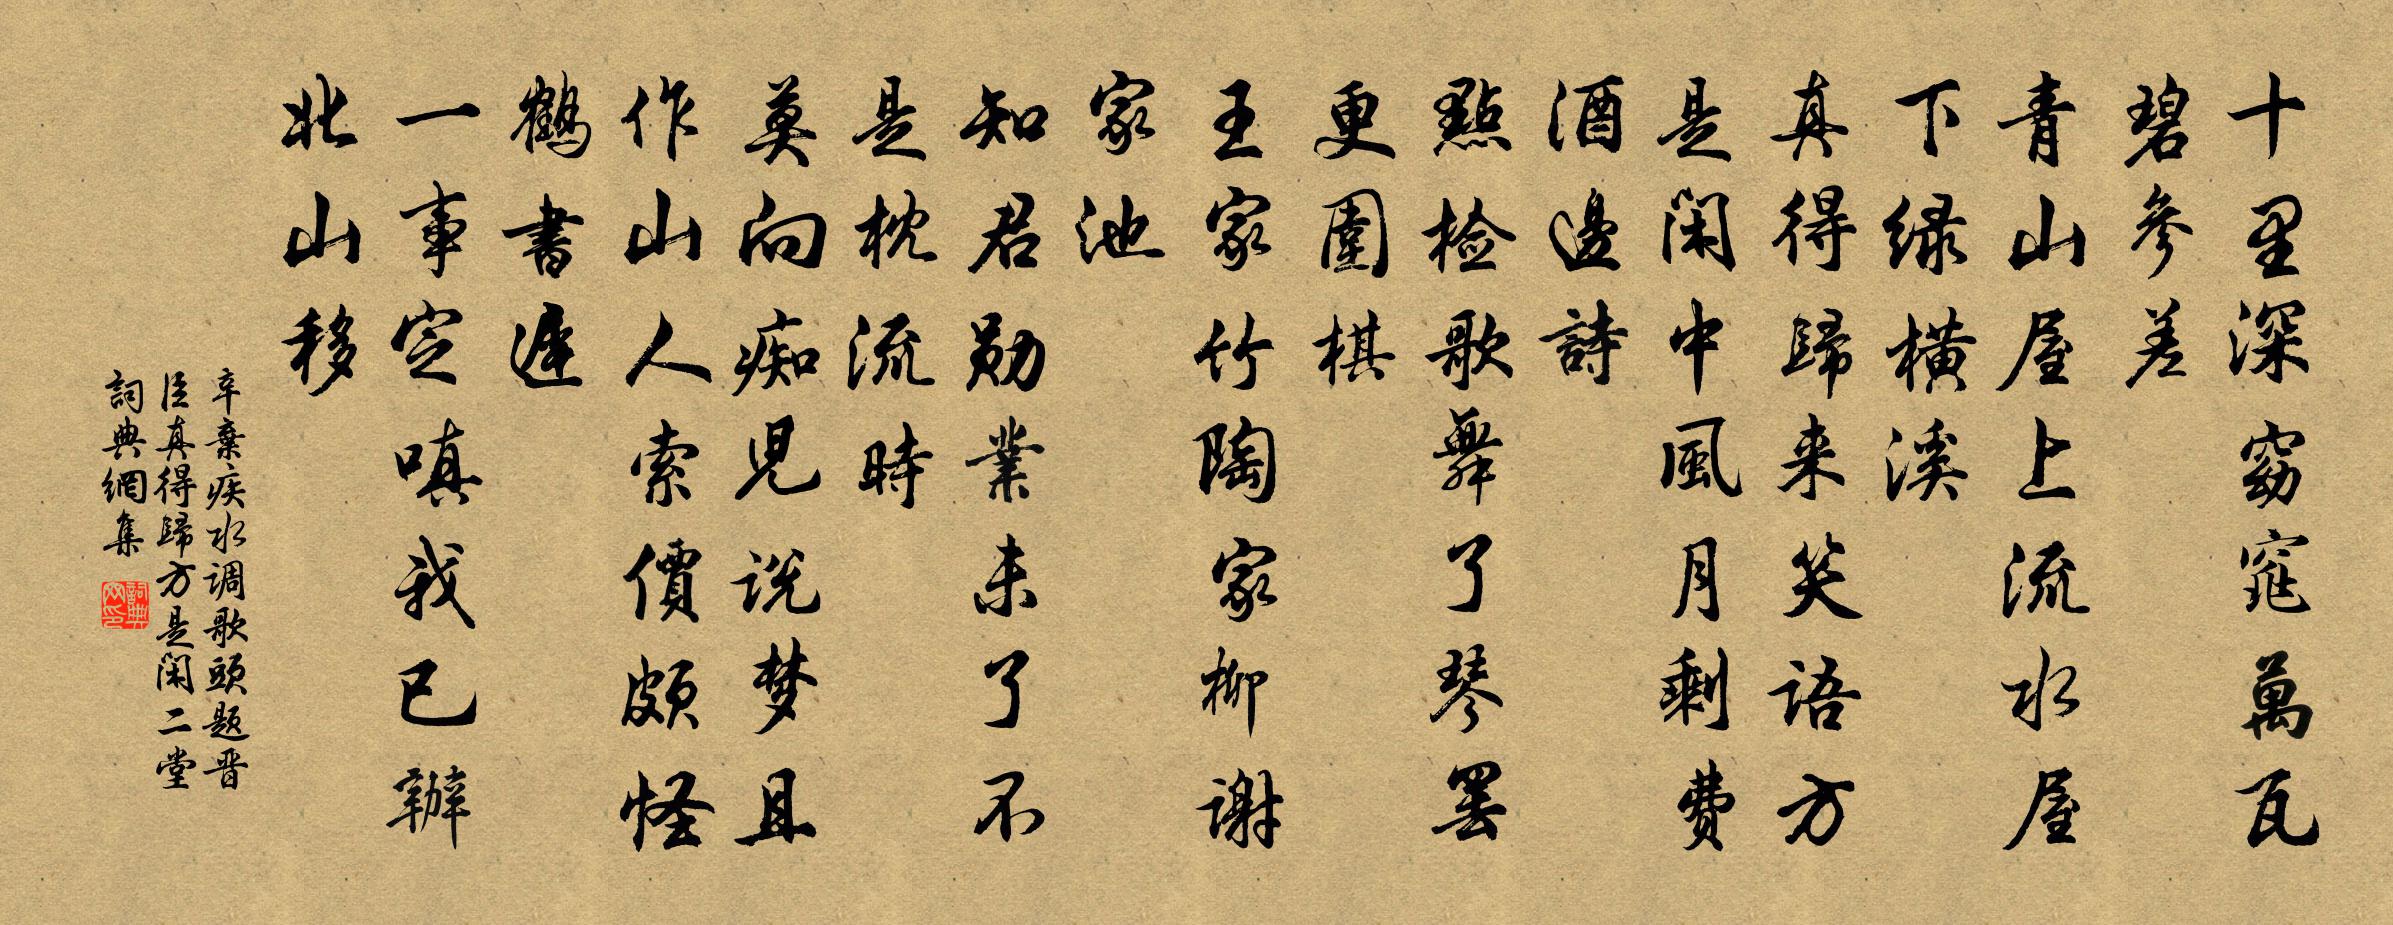 十里深窈窕萬瓦
碧參差
青山屋上流水屋
下绿横溪
真得歸来笑语方
是闲中風月剩費
酒邊詩
點检歌舞了琴罢
更圍棋
王家竹陶家柳谢
家池
知君勋業未了不
是枕流時
莫向痴兒说梦且
作山人索價頗怪
鶴書遲
一事定嗔我已辦
北山移
辛棄疾水调歌頭题晋
臣真得歸方是闲二堂
詞典網集
詞典网印